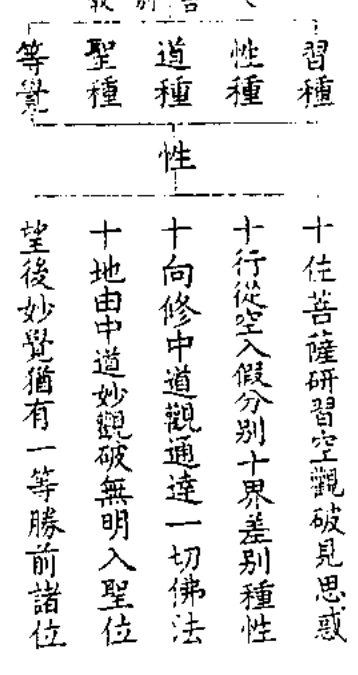 習種
性種
道種
聖種
等覺
性
十住菩薩研習空觀破見思惑
十行從空入假分別十界差別種性
十向修中道觀通達一切佛法
十地由中道妙觀破無明入聖位
望後妙覺猶有一等勝前諸位